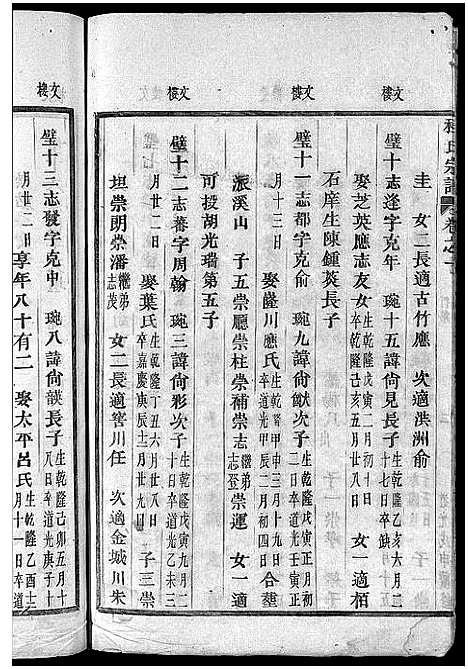 程氏宗譜 卷之
圭 女二長適古竹應 次適洪洲俞
文樓
璧十志逢字克年 琬十五諱尙見長子 生乾隆乙亥六月二 十七日卒缺
娶芝英應志友女 生乾隆戊寅二月初十日 卒乾隆己亥五月廿八日 女一適栢
石庠生陳鍾英長子
文樓
璧十一志都字克俞 琬九諱尙猷次子 生乾隆戊寅正月初 二日卒道光壬寅正
月十三日 娶盤川應氏 生乾隆甲申三月十九日 卒道光甲辰二月初四日 合塟
派溪山 子五崇廳崇柱崇補崇志 繼弟志登 崇運 女一適
可投胡光瑞第五子
文樓
璧十二志蕃字周翰 琬三諱尙彩次子 生乾隆戊寅九月二 十日卒道光乙未三
月廿八日 娶葉氏 生乾隆丁丑六月廿八日 卒嘉慶庚辰十二月廿九 子三崇
坦崇明崇潘 繼弟志茂 女二長適窖川任 次適金城川朱
文樓
璧十三志發字克中 琬八諱尙談長子 生乾隆己卯五月十 日卒道光庚子十
月廿二日享年八十有二 娶太平呂氏 生乾隆乙酉十二 月十一日卒道